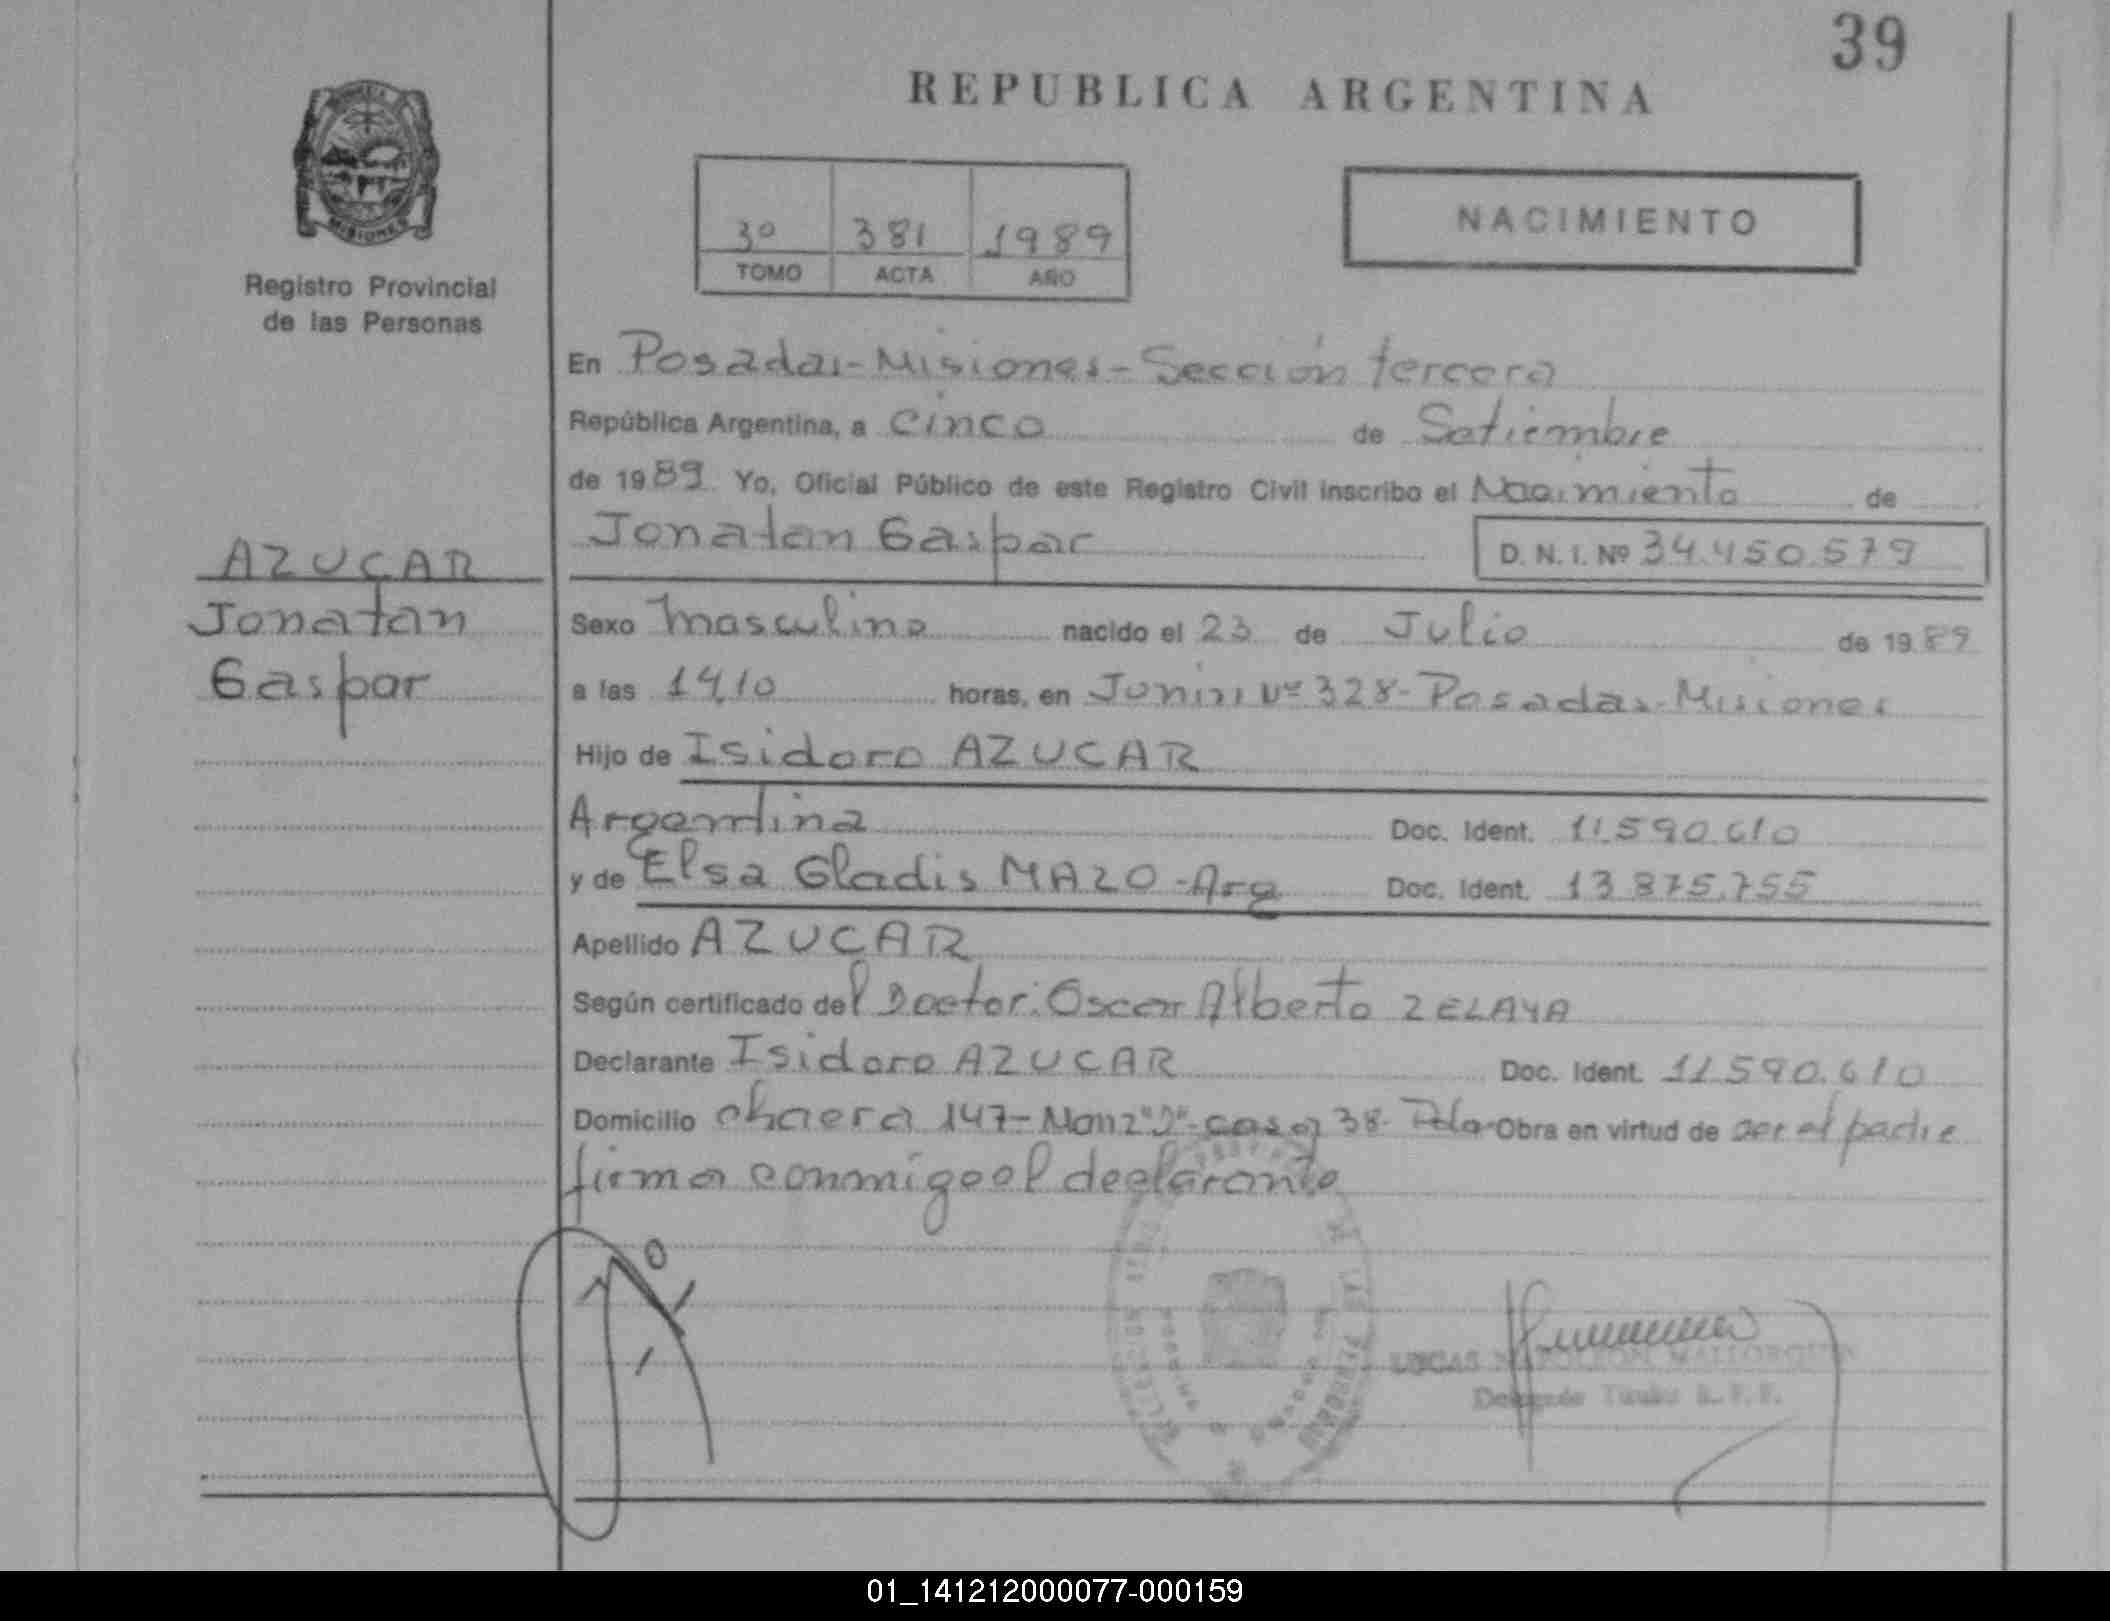 39
REPUBLICA ARGENTINA
MISIONES
Registro Provincial
de las Personas
3º 381 1989
TOMO ACTA AÑO
NACIMIENTO
En Posadas-Misiones-Sección tercera
República Argentina, a cinco de Setiembre
de 1989 Yo, Oficial Público de este Registro Civil inscribo el Nacimiento de
Jonatan Gaspar D. N. I. Nº 34.450.579
AZUCAR
Jonatan
Gaspar
Sexo masculino nacido el 23 de Julio de 1989
a las 14,10 horas, en Junin Nº 328-Posadas-Misiones
Hijo de Isidoro AZUCAR
Argentina Doc. Ident. 11.590.610
y de Elsa Gladis MAZO-Arg Doc. Ident. 13.875.755
Apellido AZUCAR
Según certificado del Doctor: Oscar Alberto ZELAYA
Declarante Isidoro AZUCAR Doc. Ident. 11.590.610
Domicilio chacra 147-Manz"D"-casa 38- Obra en virtud de ser el padre
firma conmigo el declarante
LUCAS NAPOLEON MALLORQUIN
01_141212000077-000159